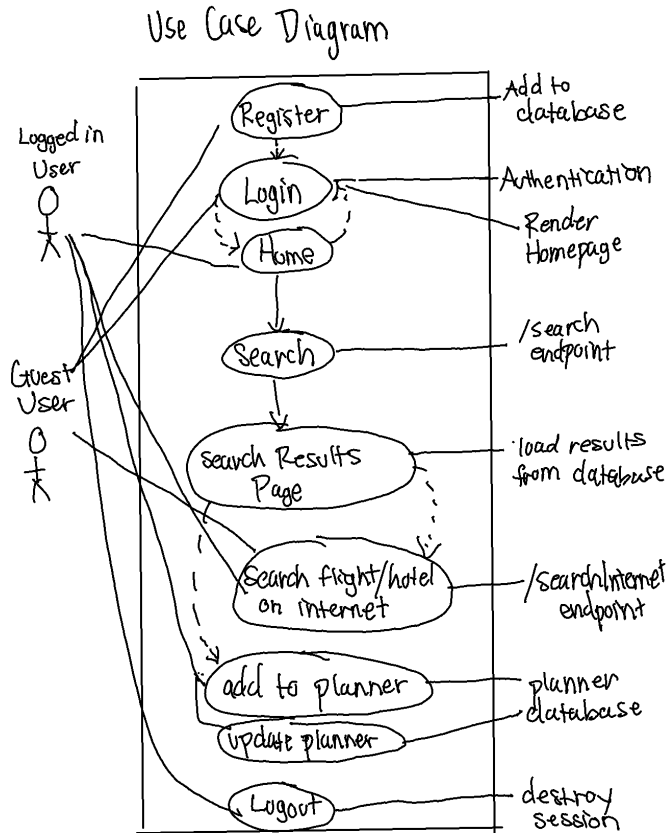 Use Case Diagram
Logged in
User
Guest
User
Register
Login
Home
Search
Search Results
Page
Search flight/hotel
on internet
add to planner
update planner
Logout
Add to
database
Authentication
Render
Homepage
/search
endpoint
load results
from database
/searchInternet
endpoint
planner
database
destroy
session